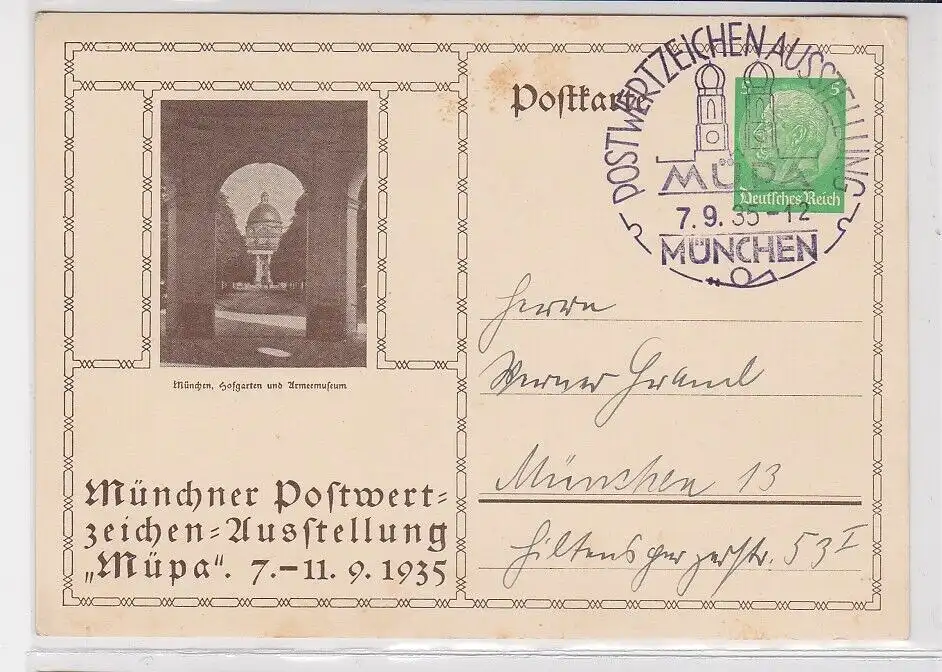 Postkarte
5 5
Deutsches Reich
POSTWERTZEICHEN AUSSTELLUNG
MÜPA
7.9.35-12
MÜNCHEN
München, Hofgarten und Armeemuseum
Münchner Postwert=
zeichen=Ausstellung
„Müpa“. 7.–11. 9. 1935
Herrn
Werner
München 13
Hiltenspergerstr. 53 I